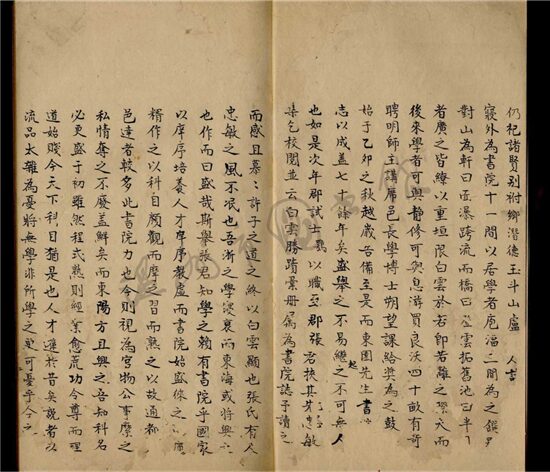 仍祀諸賢別祔鄉潛德玉斗山盧 人
寢外為書院十一間以居學者庖湢二間為之饌
對山為軒曰雲瀑跨流而橋曰登雲拓舊池曰半
者廣之皆繚以重垣限白雲於右即若離之潔而
後來學者可與靜修可與息游買良沃四十畝有奇
聘明師主講席邑長學博士朔望課給奬為之鼓
始于乙卯之秋越歲告備至是而東園先生書
志以成蓋七十餘年矣盛舉之不易繼之不可無人
也如是次年郡試士以職至郡張君挾其忠敏
集乞校閱並云白雲勝蹟彙冊屬為書院誌予讀之
而感且慕〻許子之道之終以白雲顯也張氏有人
忠敏之風不泯也吾浙之學浸衰而東海或將興
也作而曰盛哉斯舉張君知學之賴有書院乎國家
以庠序培養人才庠序教虛而書院始盛倈之
糈作之以科目顏觀而摩習而熟之以故通都
邑達者較多此書院力也今則視為官物公事摩之
私情奪之不廢蓋鮮矣而東陽方且興之吾知科名
必更盛于初雖然程式熟則經業愈荒功令尊而理
道始賤今天下科目猶是也人才遽於昔矣說者以
流品太雜為憂將無學非所學之更可憂乎今之